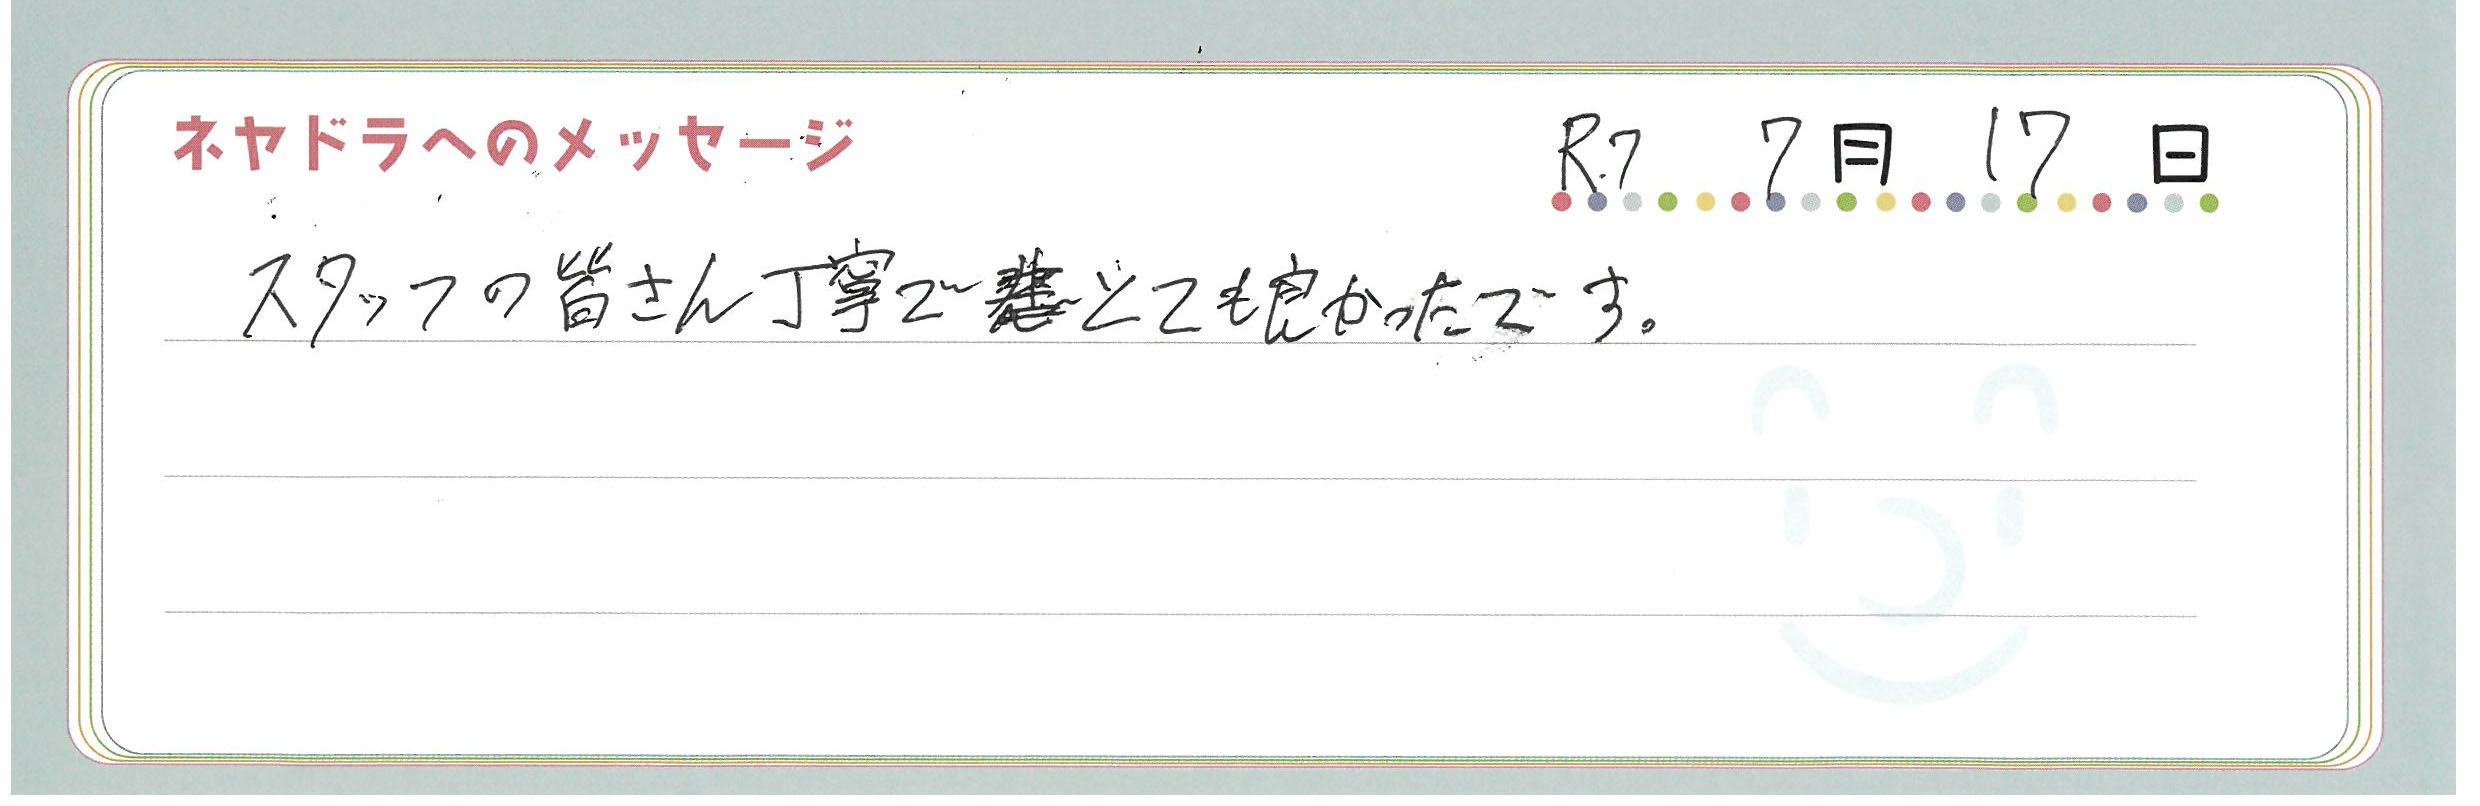 ネヤドラへのメッセージ
R.7 7月 17日
スタッフの皆さん丁寧でとても良かったです。